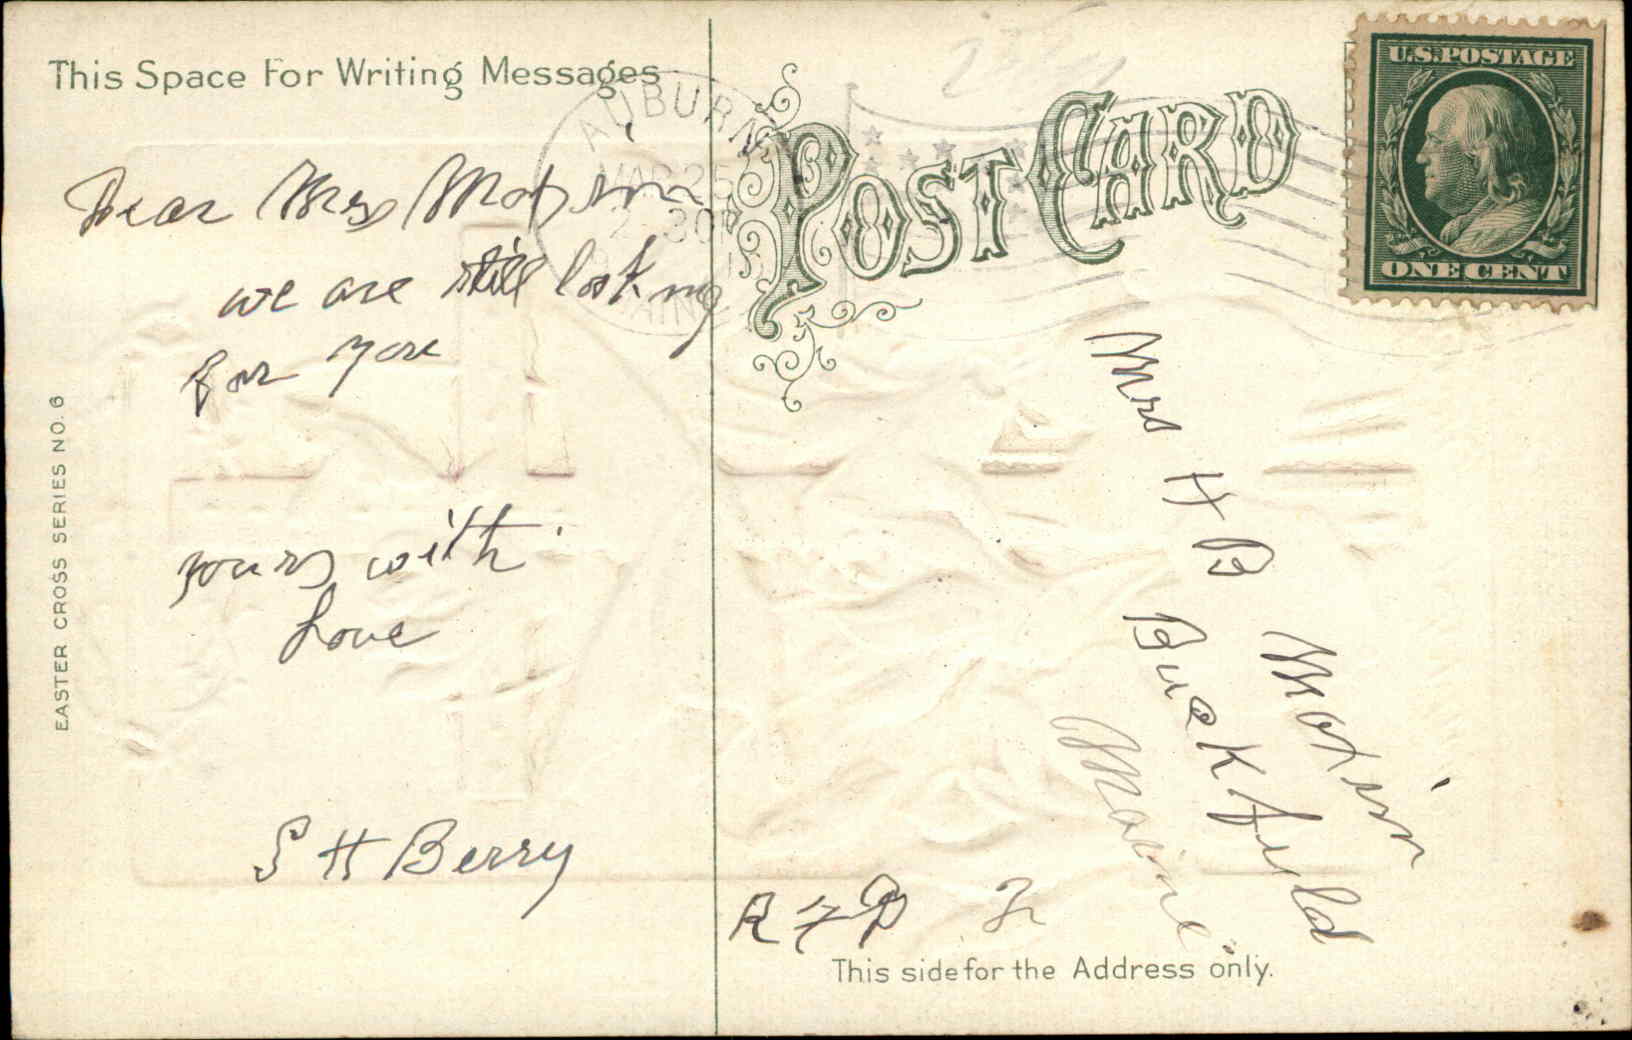 This Space For Writing Messages
AUBURN
MAR 25
2 30P
MAINE
POST CARD
U.S. POSTAGE
ONE CENT
Dear Mrs Maxim
we are still looking
for you
yours with
Love
S H Berry
EASTER CROSS SERIES NO. 6
Mrs H B Maxim
Buckfield
Maine
R F D 2
This side for the Address only.